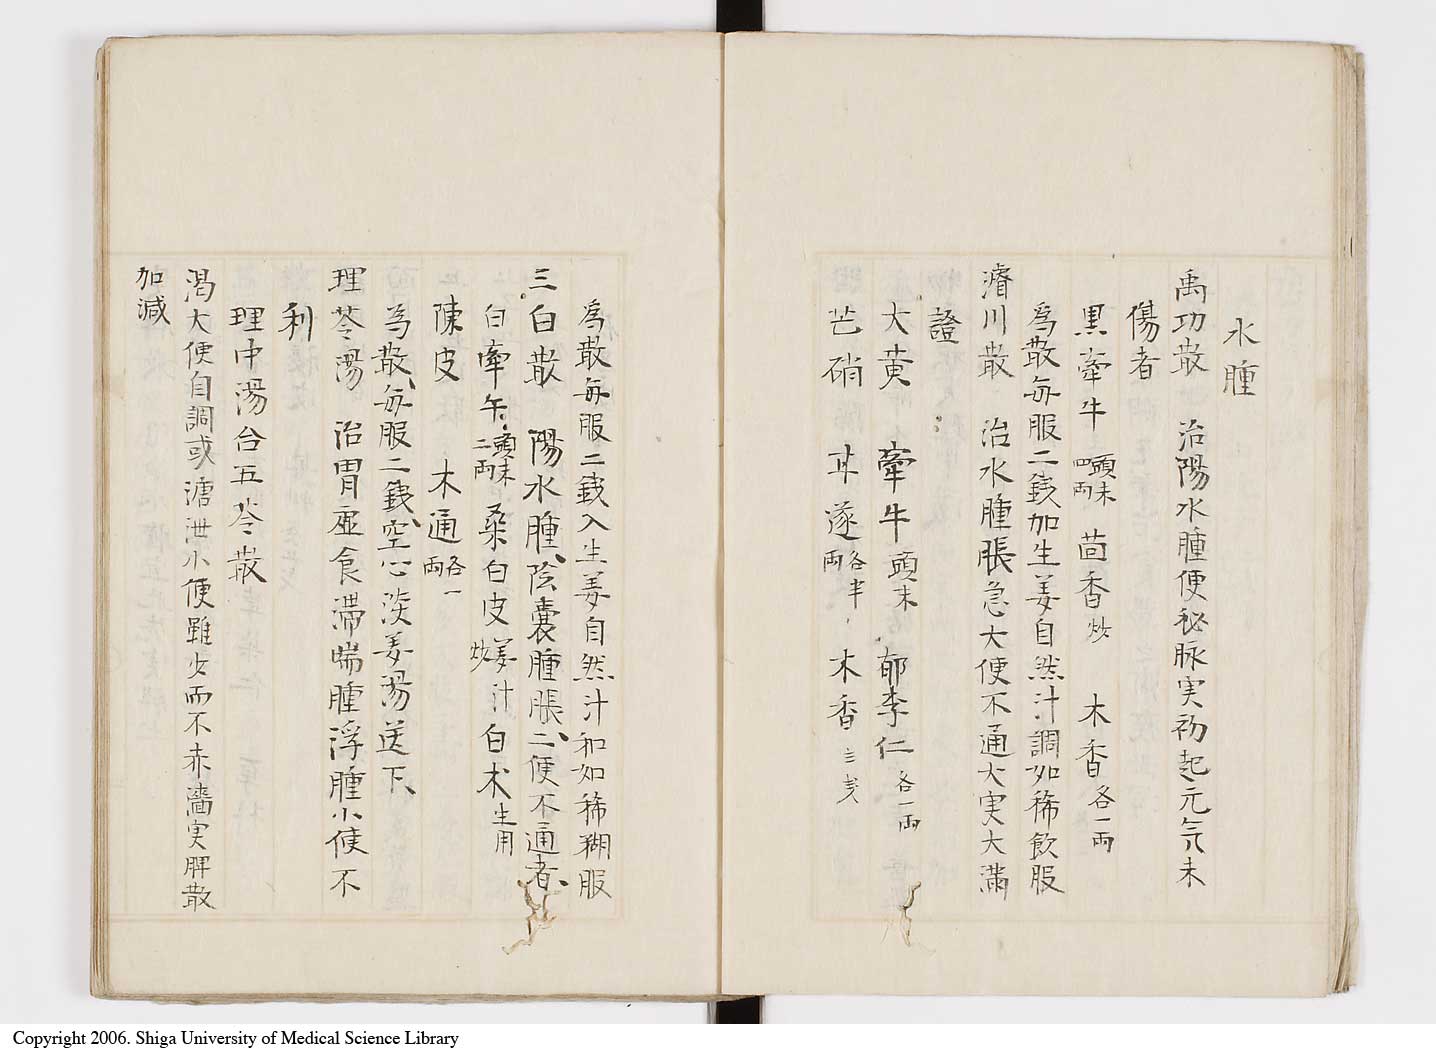 水腫
禹功散 治陽水腫便秘脉実初起元気未
傷者
黒牽牛 頭末四両 茴香 炒 木香 各一両
為散毎服二銭加生姜自然汁調如稀飲服
濬川散 治水腫脹急大便不通大実大満
證
大黄 牽牛 頭末 郁李仁 各一両
芒硝 甘遂 各半両 木香 三戔
為散毎服二銭入生姜自然汁和如稀糊服
三白散 陽水腫、陰嚢腫脹、二便不通者、
白牽牛 頭末二両 桑白皮 姜汁炒 白朮 生用
陳皮 木通 各一両
為散、毎服二銭、空心淡姜湯送下、
理苓湯 治胃虚食滞喘腫浮腫小便不
利
理中湯合五苓散
渇大便自調或溏泄小便雖少而不赤濇実脾散
加減
Copyright 2006. Shiga University of Medical Science Library